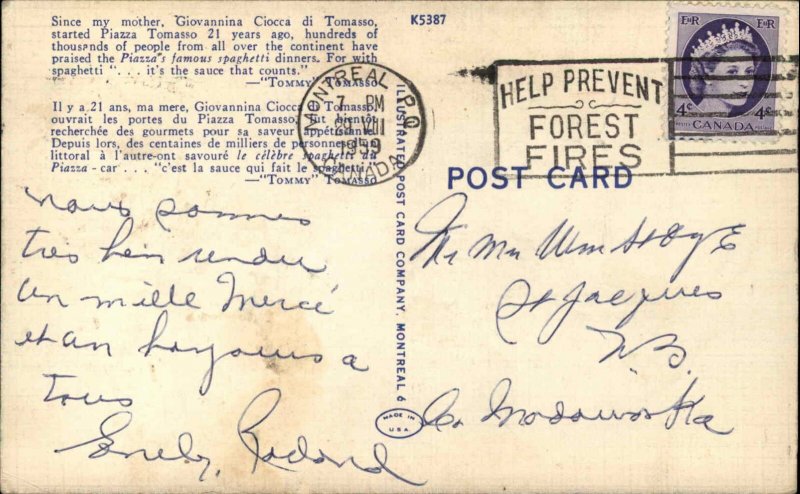 Since my mother, Giovannina Ciocca di Tomasso,
started Piazza Tomasso 21 years ago, hundreds of
thousands of people from all over the continent have
praised the Piazza's famous spaghetti dinners. For with
spaghetti ". . . it's the sauce that counts."
—"TOMMY" TOMASSO
Il y a 21 ans, ma mere, Giovannina Ciocca di Tomasso,
ouvrait les portes du Piazza Tomasso, fut bientôt
recherchée des gourmets pour sa saveur appétissante.
Depuis lors, des centaines de milliers de personnes d'un
littoral à l'autre-ont savouré le célèbre spaghetti du
Piazza - car . . . "c'est la sauce qui fait le spaghetti!"
—"TOMMY" TOMASSO
nous sommes
tres bein rendu
un mille Merci
et un bonjours a
tous
Emely, Roland
K5387
ILLUSTRATED POST CARD COMPANY, MONTREAL 6
MADE IN
U.S.A.
MONTREAL P.Q.
PM
VIII
1959
CANADA
HELP PREVENT
FOREST
FIRES
EiiR EiiR
4¢ 4¢
CANADA
POSTES POSTAGE
POST CARD
Mr Mrs Wm St
St Jacques
N.B.
Co Madawaska